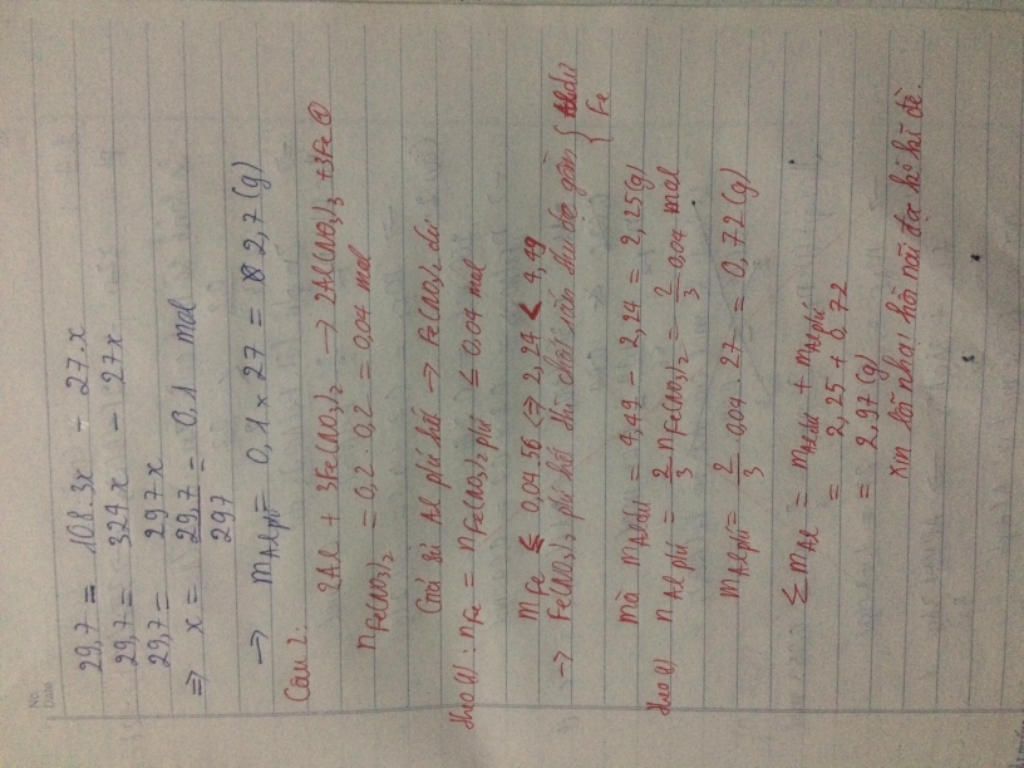 No.
Date
29,7 = 108.3x - 27.x
29,7 = 324x - 27x
29,7 = 297x
=> x = 29,7/297 = 0,1 mol
→ mAlpứ = 0,1 x 27 = 2,7(g)
Câu 2:
2Al + 3Fe(NO3)2 → 2Al(NO3)3 + 3Fe ①
nFe(NO3)2 = 0,2 . 0,2 = 0,04 mol
Giả sử Al pứ hết → Fe(NO3)2 dư
theo (1) : nFe = nFe(NO3)2 pứ ≤ 0,04 mol
mFe ≤ 0,04.56 <=> 2,24 < 4,49
→ Fe(NO3)2 pứ hết thì chất rắn thu đc gồm { Al dư
Fe
mà mAldư = 4,49 - 2,24 = 2,25(g)
theo (1) nAl pứ = 2/3 nFe(NO3)2 = 2/3 0,04 mol
mAlpứ = 2/3 . 0,04 . 27 = 0,72(g)
Σ mAl = mAldư + mAlpứ
= 2,25 + 0,72
= 2,97(g)
xin lỗi nha! hồi nãi đọc k kĩ đề.